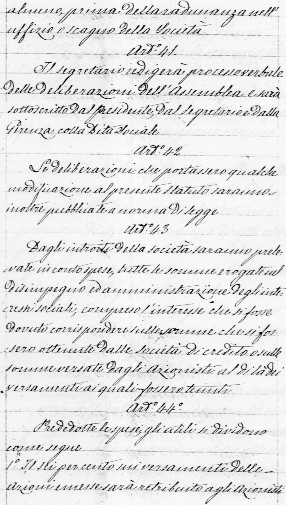 almeno, prima della radunanza nell'
uffizio, o scagno della Società
Art.º 41
Il segretario redigerà processo verbale
delle deliberazioni dell'Assemblea e sarà
sottoscritto dal presidente, dal segretario e dalla
Gerenza colla Ditta Sociale
Art.º 42
Le deliberazioni che portassero qualche
modificazione al presente statuto saranno
inoltre pubblicate a norma di legge
Art.º 43
Dagli introiti della società saranno prele-
vate in conto spese, tutte le somme erogate nel
disimpegno ed amministrazione degli inte-
ressi sociali, compreso l'interesse che si fosse
dovuto corrispondere sulle somme che si fos-
sero ottenute dalle Società di credito o sulle
somme versate dagli azionisti al di là dei
versamenti ai quali fossero tenuti
Art.º 44º
Prededotte le spese, gli utili si dividono
come segue
1º Il sei per cento sui versamenti delle
azioni emesse sarà retribuito agli azionisti